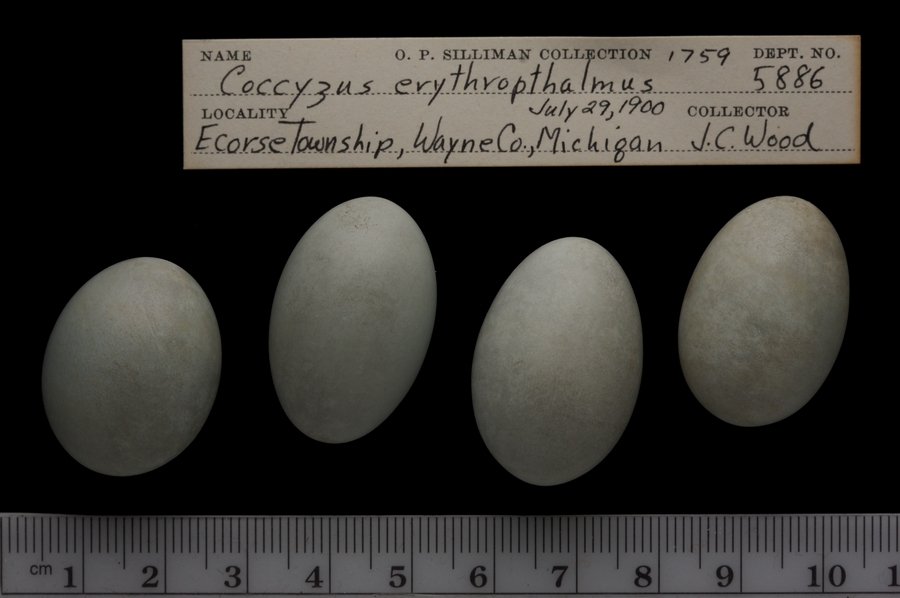 NAME O. P. SILLIMAN COLLECTION 1759 DEPT. NO.
Coccyzus erythropthalmus 5886
LOCALITY July 29, 1900 COLLECTOR
Ecorse Township, Wayne Co., Michigan J.C. Wood
cm 1 2 3 4 5 6 7 8 9 10 1